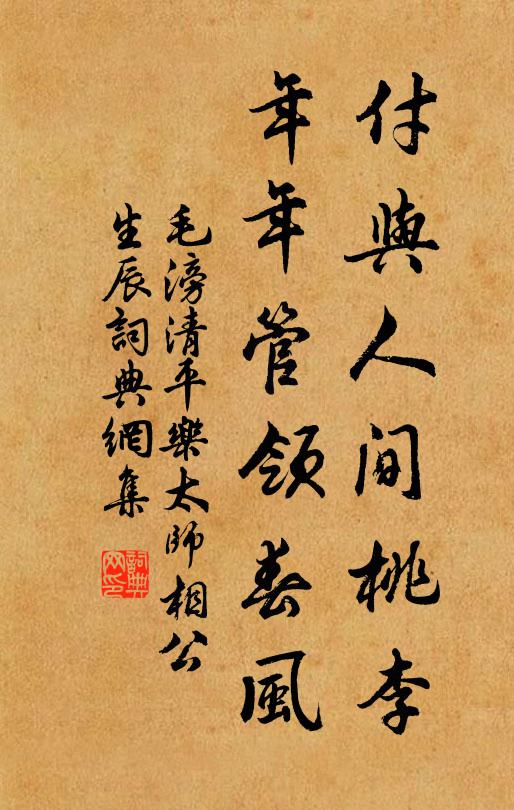 付與人間桃李
年年管領春風
毛滂清平樂太師相公
生辰詞典網集
詞典
网印